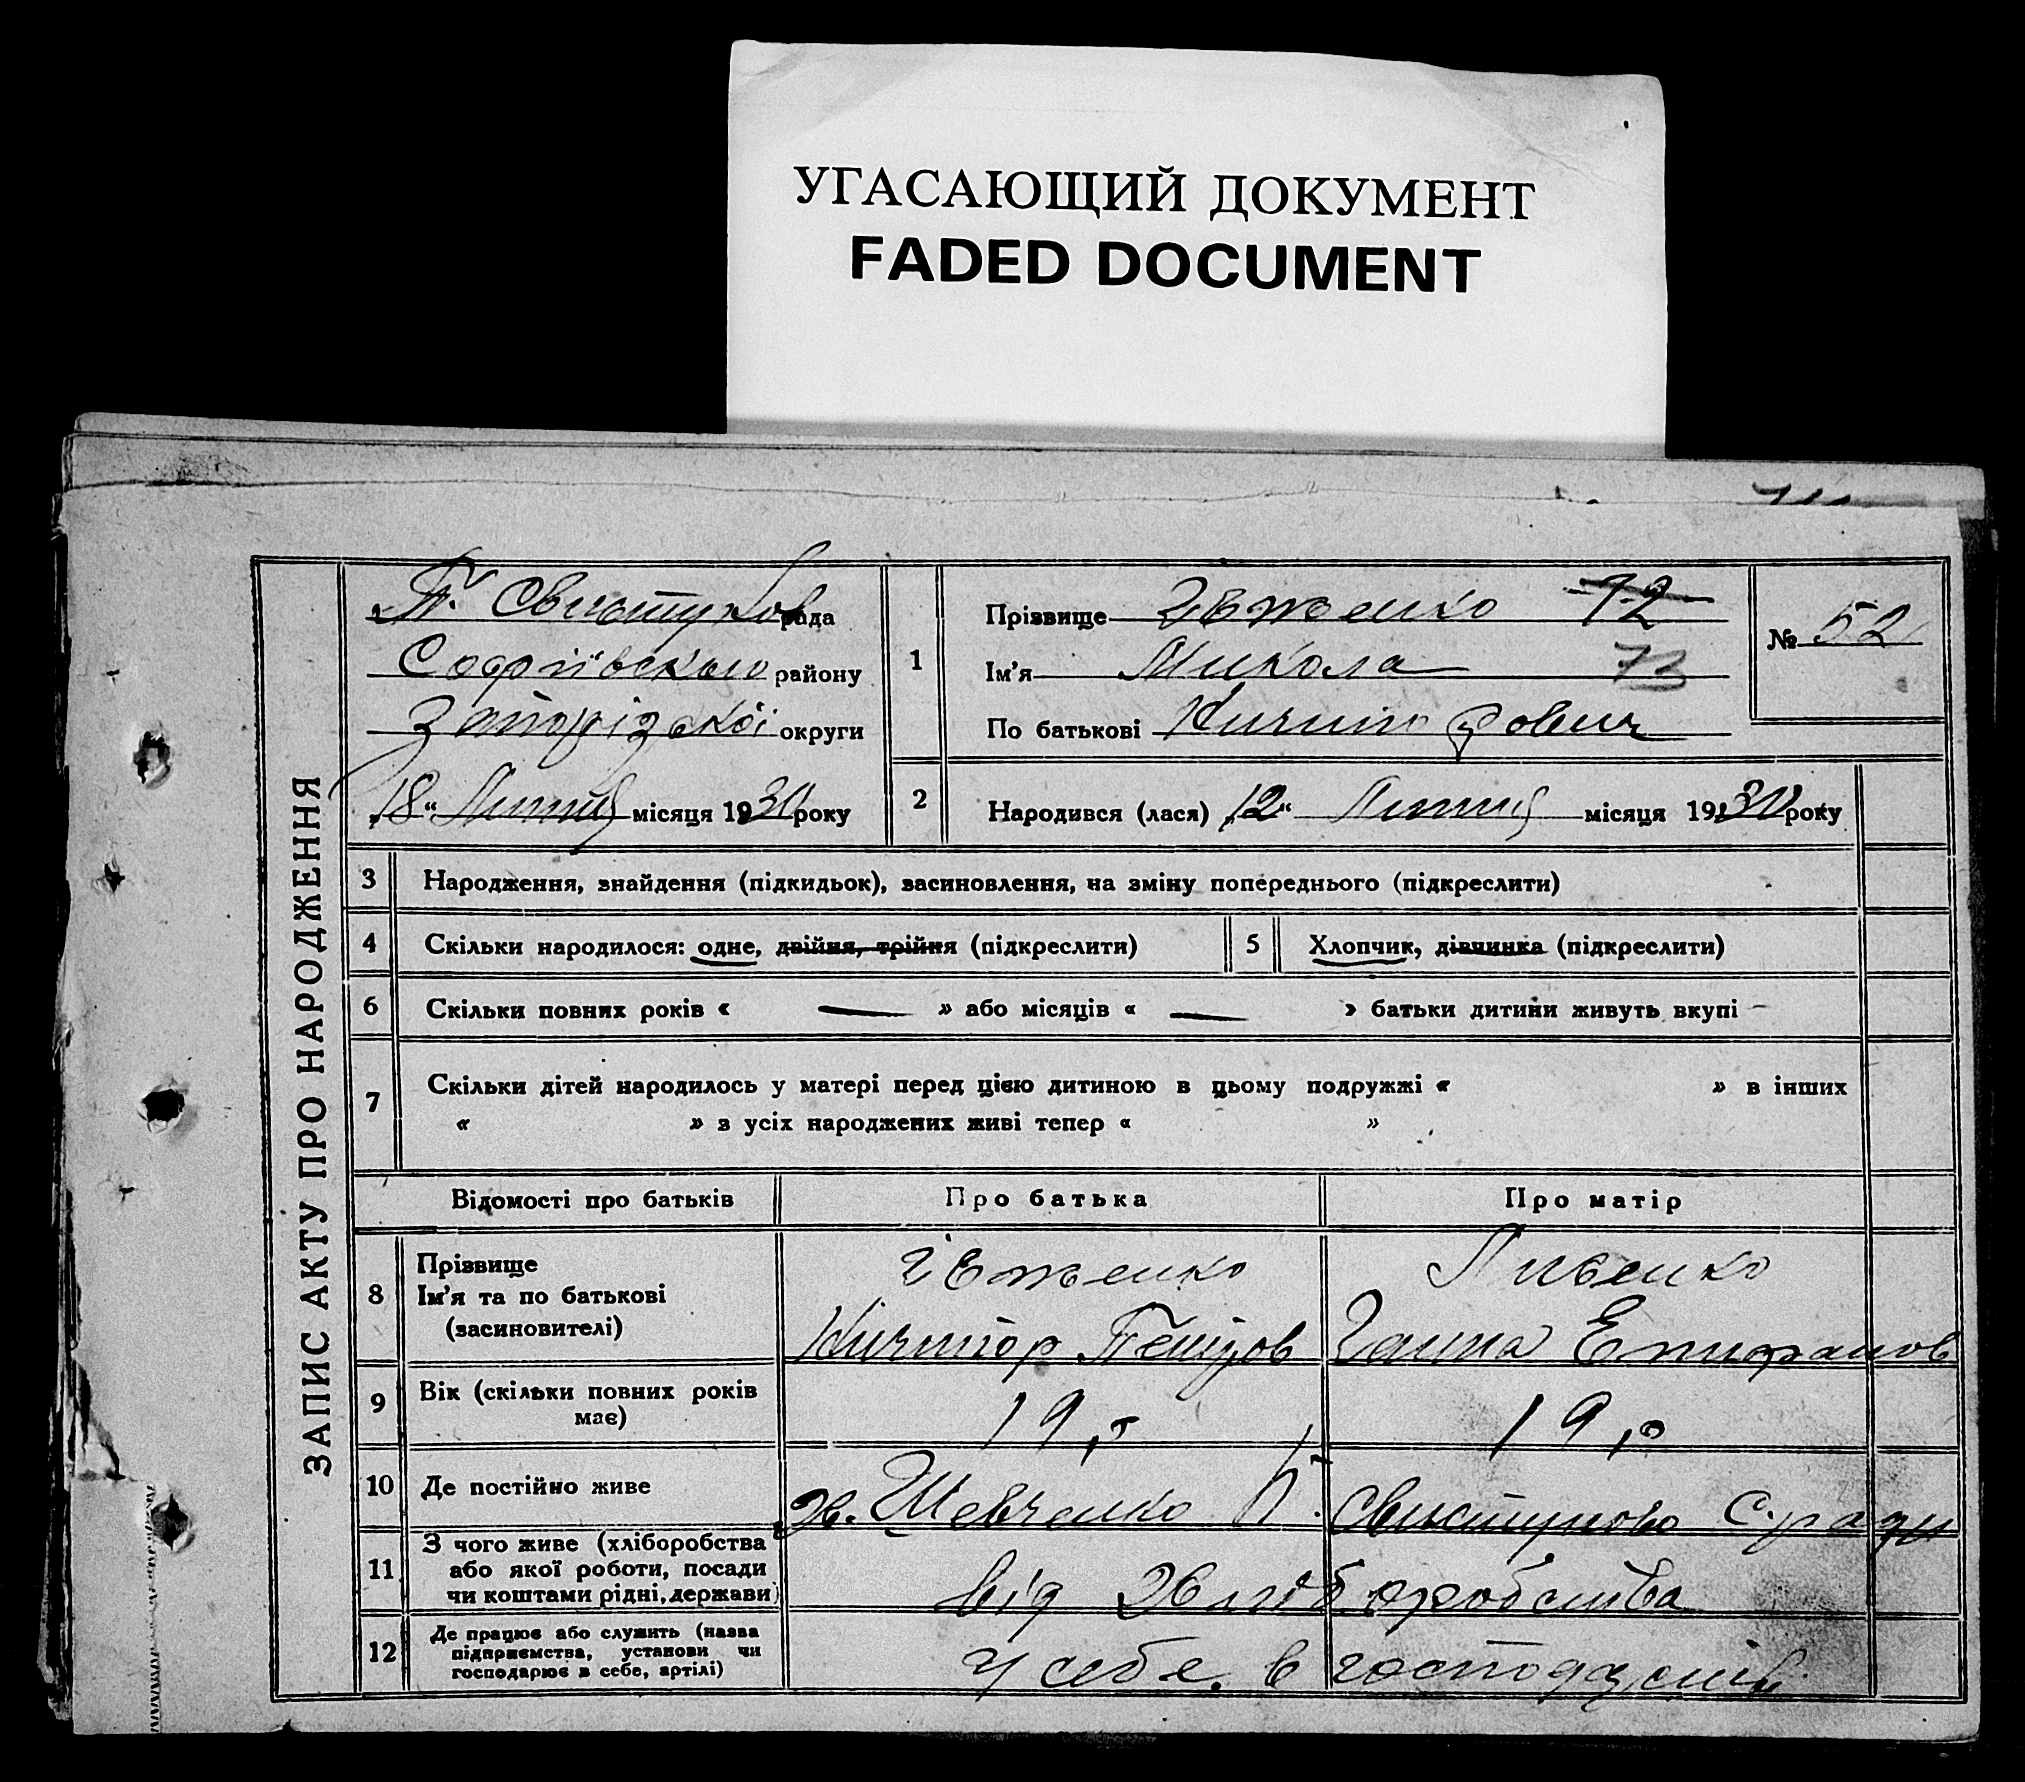 УГАСАЮЩИЙ ДОКУМЕНТ
FADED DOCUMENT
ЗАПИС АКТУ ПРО НАРОДЖЕННЯ
П. Свистунов рада
Софіївського району
Запорізької округи
„18“ Липня місяця 1930 року
1
Прізвище Євженко 72
Ім’я Микола 73
По батькові Ничипорович
№ 52
2
Народився (лася) „12“ Липня місяця 1930 року
3 Народження, знайдення (підкидьок), засиновлення, на зміну попереднього (підкреслити)
4 Скільки народилося: одне, двійня, трійня (підкреслити)
5 Хлопчик, дівчинка (підкреслити)
6 Скільки повних років « — » або місяців « — » батьки дитини живуть вкупі
7 Скільки дітей народилось у матері перед цією дитиною в цьому подружжі « » в інших
« » з усіх народжених живі тепер « »
Відомості про батьків Про батька Про матір
8 Прізвище
Ім’я та по батькові
(засиновителі)
Євженко
Ничипор
Пивенко
Ганна Епифанов
9 Вік (скільки повних років має)
19 р
19 р
10 Де постійно живе
х. Шевченко П. Свистуново С.ради
11 З чого живе (хліборобства
або якої роботи, посади
чи коштами рідні, держави)
від Хліборобства
12 Де працює або служить (назва
підприємства, установи чи
господарює в себе, артілі)
У себе в господарстві